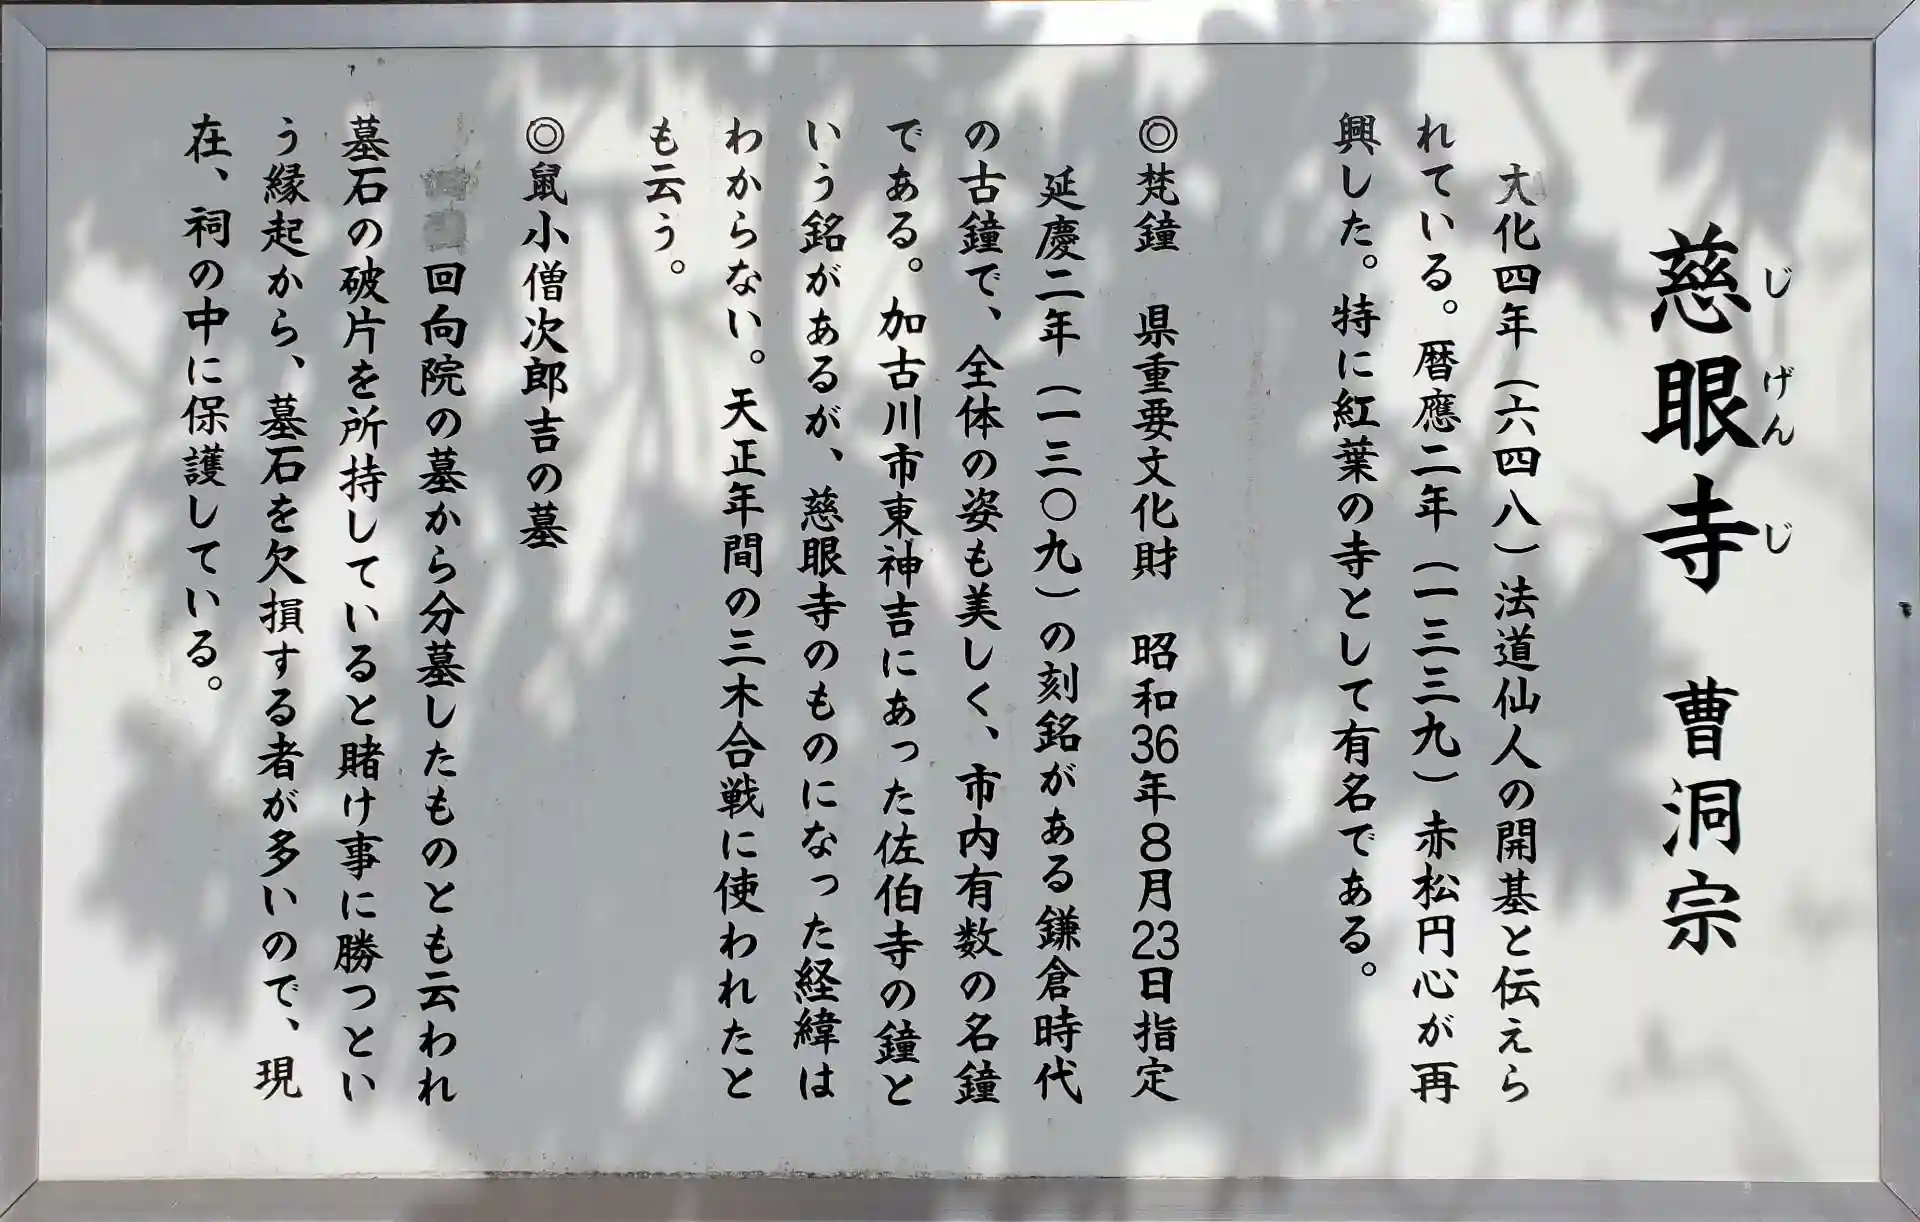 慈眼寺 曹洞宗
じげんじ
大化四年（六四八）法道仙人の開基と伝えら
れている。暦應二年（一三三九）赤松円心が再
興した。特に紅葉の寺として有名である。
◎梵鐘 県重要文化財 昭和36年8月23日指定
延慶二年（一三〇九）の刻銘がある鎌倉時代
の古鐘で、全体の姿も美しく、市内有数の名鐘
である。加古川市東神吉にあった佐伯寺の鐘と
いう銘があるが、慈眼寺のものになった経緯は
わからない。天正年間の三木合戦に使われたと
も云う。
◎鼠小僧次郎吉の墓
回向院の墓から分墓したものとも云われ
墓石の破片を所持していると賭け事に勝つとい
う縁起から、墓石を欠損する者が多いので、現
在、祠の中に保護している。